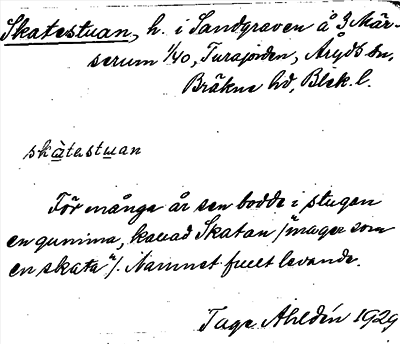 Skatestuan, h. i Sandgraven å 3 Mär-
serum 1/40, Turajorden, Åryds sn,
Bräkne hd, Blek. l.
skàtestuan
För många år sen bodde i stugan
en gumma, kallad Skatan /"mager som
en skata"/. Namnet fullt levande.
Tage Ahldén 1929